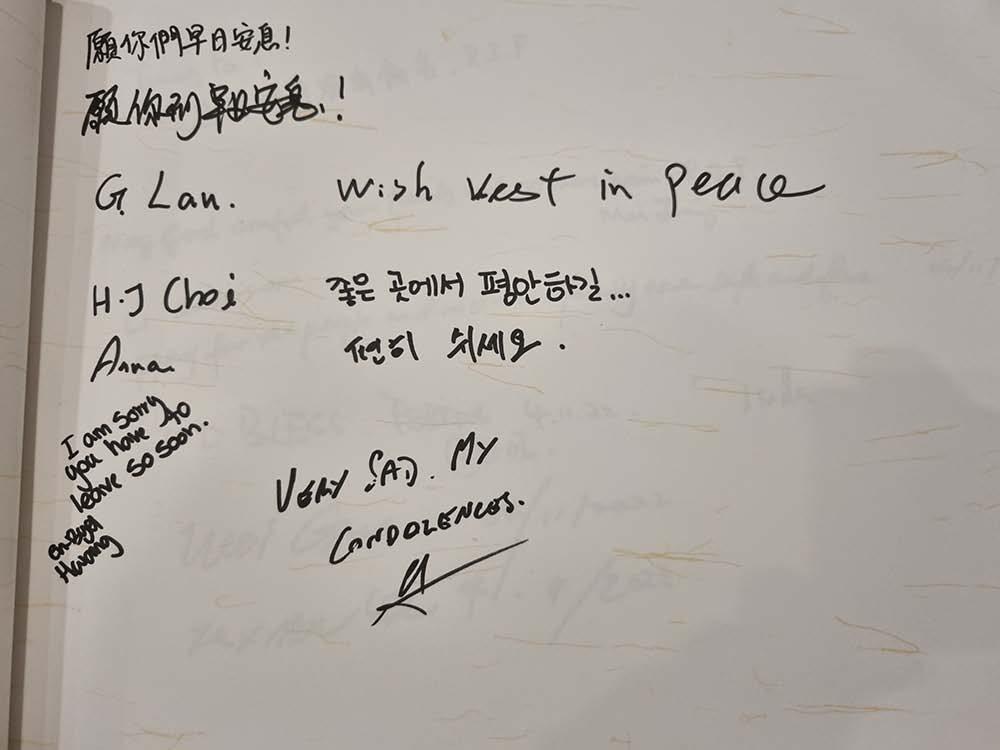 願你們早日安息!
願你們早日安息!
G. Lau. Wish Rest in peace
H.J Choi 좋은 곳에서 평안하길...
Anna 편히 쉬세요.
I am sorry
you have to
leave so soon.
VERY SAD. MY
CONDOLENCES.